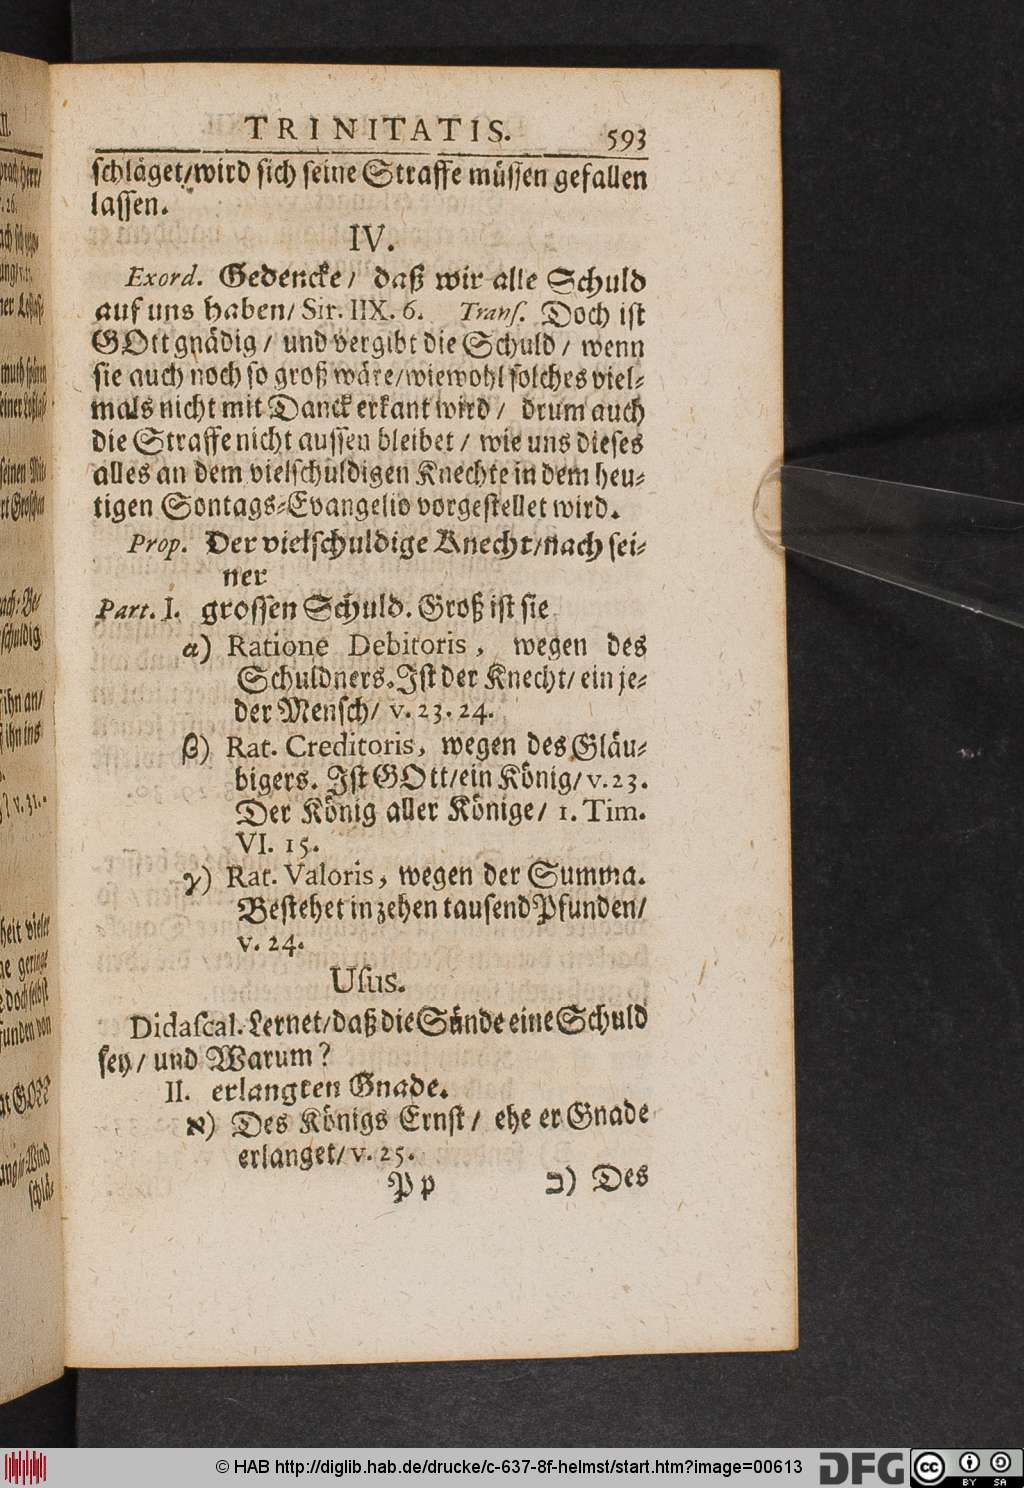 TRINITATIS. 593
schläget/wird sich seine Straffe müssen gefallen
lassen.
IV.
Exord. Gedencke/ daß wir alle Schuld
auf uns haben/ Sir. IIX. 6. Transs. Doch ist
GOtt gnädig/ und vergibt die Schuld/ wenn
sie auch noch so groß wäre/wiewohl solches viel-
mals nicht mit Danck erkant wird/ drum auch
die Straffe nicht aussen bleibet/ wie uns dieses
alles an dem vielschuldigen Knechte in dem heu-
tigen Sontags-Evangelio vorgestellet wird.
Prop. Der vielschuldige Knecht/nach sei-
ner
Part. I. grossen Schuld. Groß ist sie
α) Ratione Debitoris, wegen des
Schuldners. Ist der Knecht/ ein je-
der Mensch/ v. 23. 24.
β) Rat. Creditoris, wegen des Gläu-
bigers. Ist GOtt/ein König/ v. 23.
Der König aller Könige/ 1. Tim.
VI. 15.
γ) Rat. Valoris, wegen der Summa.
Bestehet in zehen tausend Pfunden/
v. 24.
Usus.
Didascal. Lernet/daß die Sünde eine Schuld
sey/ und Warum?
II. erlangten Gnade.
א) Des Königs Ernst/ ehe er Gnade
erlanget/ v. 25.
Pp ב) Des
© HAB http://diglib.hab.de/drucke/c-637-8f-helmst/start.htm?image=00613
DFG
cc
BY SA